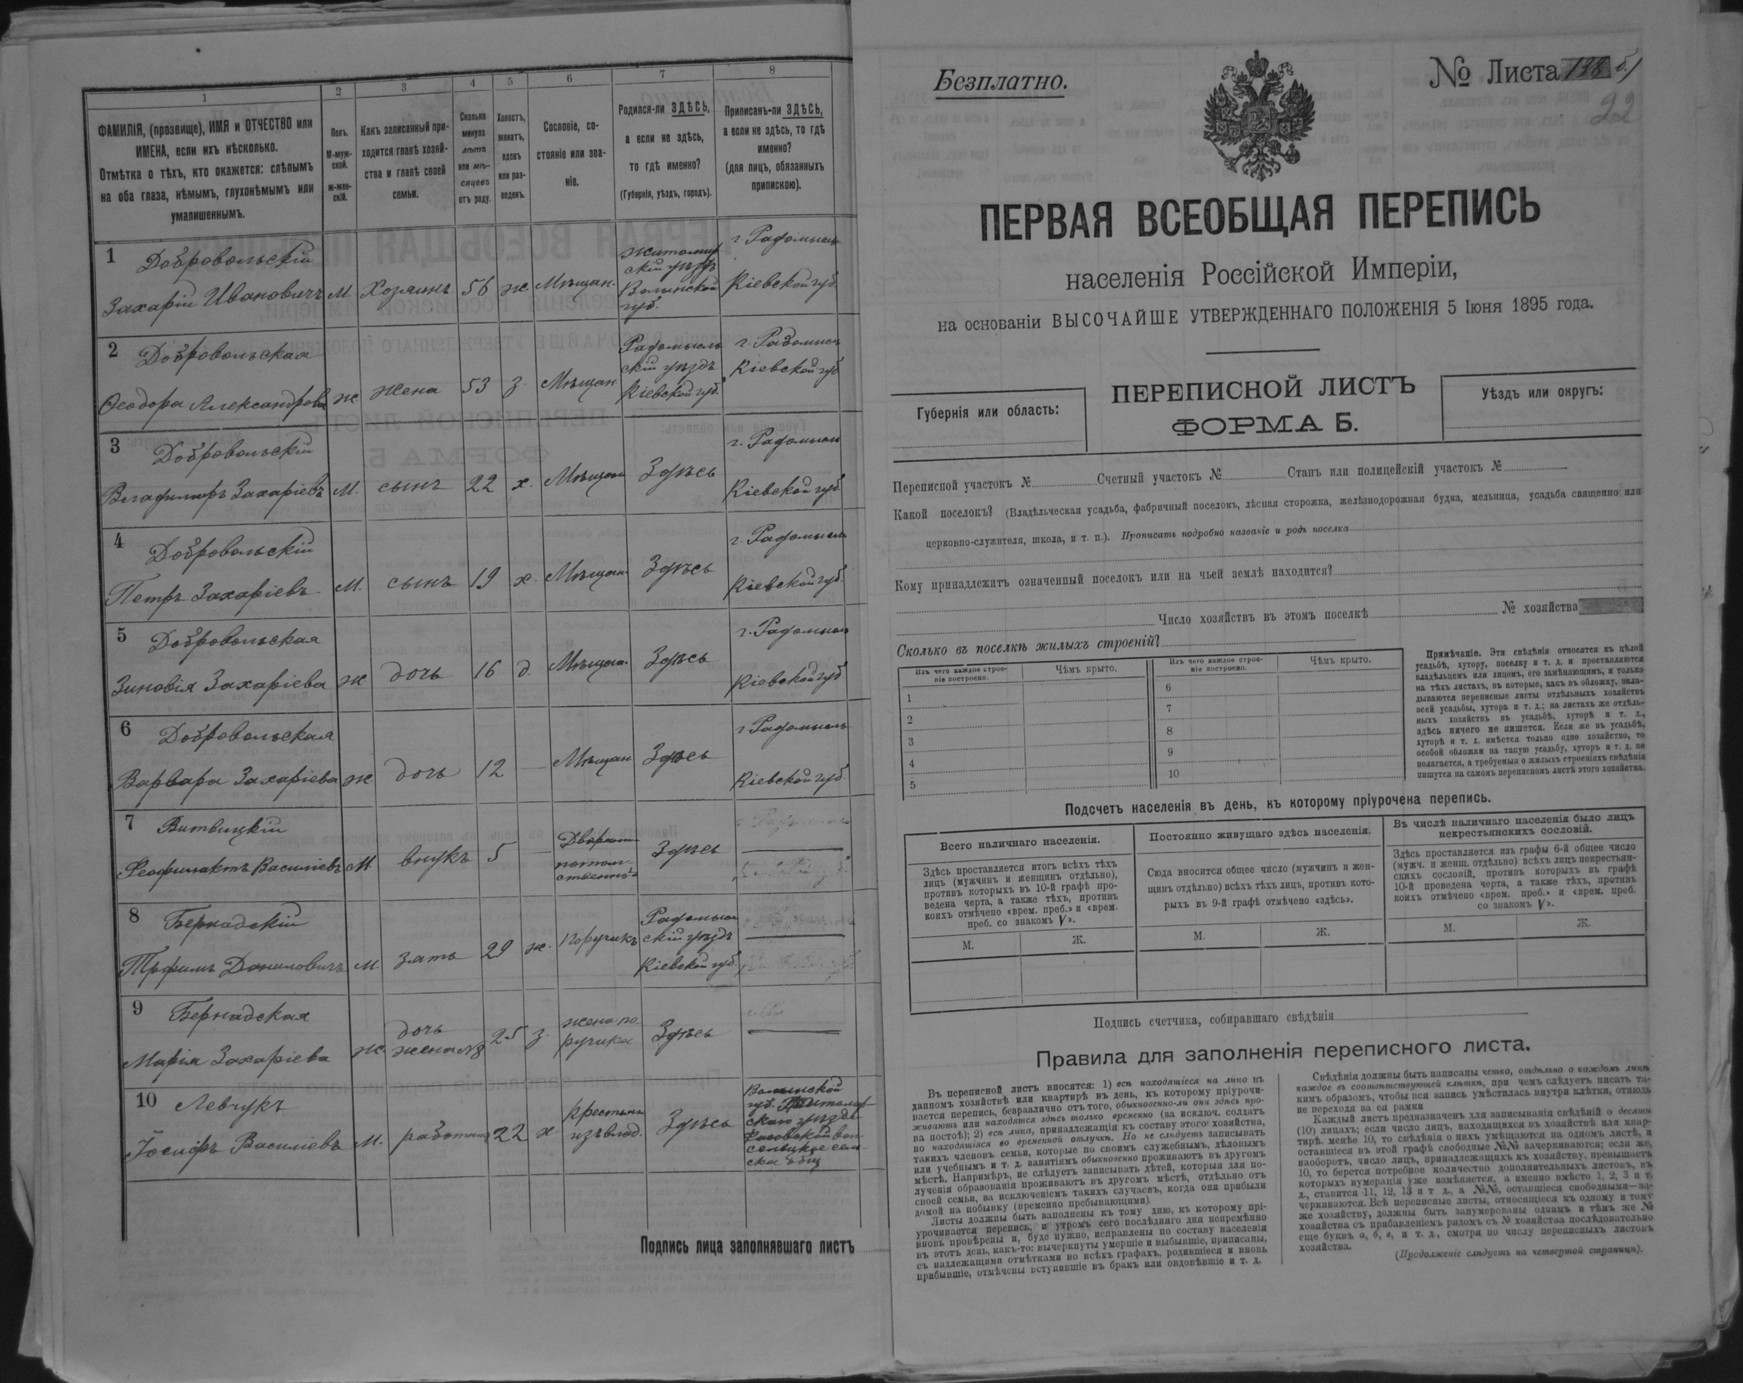 1 2 3 4 5 6 7 8
ФАМИЛІЯ, (прозвище), ИМЯ и ОТЧЕСТВО или
ИМЕНА, если ихъ нѣсколько.
Отмѣтка о тѣхъ, кто окажется: слѣпымъ
на оба глаза, нѣмымъ, глухонѣмымъ или
умалишеннымъ.
Полъ.
М-муж-
ской.
ж-жен-
скій.
Какъ записанный при-
ходится главѣ хозяй-
ства и главѣ своей
семьи.
Сколько
минуло
лѣтъ
или мѣ-
сяцевъ
отъ роду.
Холостъ,
женатъ,
вдовъ
или раз-
веденъ.
Сословіе, со-
стояніе или зва-
ніе.
Родился-ли ЗДѢСЬ,
а если не здѣсь,
то гдѣ именно?
(Губернія, уѣздъ, городъ).
Приписанъ-ли ЗДѢСЬ,
а если не здѣсь, то гдѣ
именно?
(для лицъ, обязанныхъ
припискою).
1 Добровольскій
Захарій Ивановичъ м. Хозяинъ 56 ж. Мѣщан.
Житомир
скій уѣздъ
Волынской
губ.
г. Радомысль
Кіевской губ.
2 Добровольская
Ѳеодора Александрова ж жена 53 з. Мѣщан
Радомысль
скій уѣздъ
Кіевской губ.
г. Радомысль
Кіевской губ
3 Добровольскій
Владимиръ Захаріевъ м. сынъ 22 х. Мѣщан Здѣсь
г. Радомысль
Кіевской губ
4 Добровольскій
Петръ Захаріевъ м. сынъ 19 х. Мѣщан Здѣсь
г. Радомысль
Кіевской губ.
5 Добровольская
Зиновія Захаріева ж дочь 16 д. Мѣщан. Здѣсь
г. Радомысль
Кіевской губ
6 Добровольская
Варвара Захаріева ж дочь 12 — Мѣщан Здѣсь
г. Радомысль
Кіевской губ.
7 Витвицкій
Феофилактъ Василіевъ м внукъ 5 — Здѣсь
8 Бернадскій
Трофимъ Даниловичъ м зять 29 ж. Поручикъ
Радомысль
скій уѣздъ
Кіевской губ.
9 Бернадская
Марія Захаріева ж.
дочь
жена №8
25 з.
жена по
ручика
Здѣсь
10 Левчукъ
Іосифъ Василіевъ м. работникъ 22 х
крестьян
Здѣсь
Волынской
губ. Житомир
скаго уѣзда
Подпись лица заполнявшаго листъ
Безплатно.
№ Листа 138 б)
22
ПЕРВАЯ ВСЕОБЩАЯ ПЕРЕПИСЬ
населенія Россійской Имперіи,
на основаніи ВЫСОЧАЙШЕ УТВЕРЖДЕННАГО ПОЛОЖЕНІЯ 5 Іюня 1895 года.
Губернія или область:
ПЕРЕПИСНОЙ ЛИСТЪ
ФОРМА Б.
Уѣздъ или округъ:
Переписной участокъ № Счетный участокъ № Станъ или полицейскій участокъ №
Какой поселокъ? (Владѣльческая усадьба, фабричный поселокъ, лѣсная сторожка, желѣзнодорожная будка, мельница, усадьба священно или
церковно-служителя, школа, и т. п.). Прописать подробно названіе и родъ поселка
Кому принадлежитъ означенный поселокъ или на чьей землѣ находится?
Число хозяйствъ въ этомъ поселкѣ № хозяйства
Сколько въ поселкѣ жилыхъ строеній?
Изъ чего каждое строе-
ніе построено.
Чѣмъ крыто.
Изъ чего каждое строе-
ніе построено.
Чѣмъ крыто.
1 6
2 7
3 8
4 9
5 10
Примѣчаніе. Эти свѣдѣнія относятся къ цѣлой
усадьбѣ, хутору, поселку и т. д. и проставляются
владѣльцемъ или лицомъ, его замѣняющимъ, и только
на тѣхъ листахъ, въ которые, какъ въ обложку, вкла-
дываются переписные листы отдѣльныхъ хозяйствъ
всей усадьбы, хутора и т. д.; на листахъ же отдѣль-
ныхъ хозяйствъ въ усадьбѣ, хуторѣ и т. д.,
здѣсь ничего не пишется. Если же въ усадьбѣ,
хуторѣ и т. д. имѣется только одно хозяйство, то
особой обложки на такую усадьбу, хуторъ и т. д. не
полагается, а требуемыя о жилыхъ строеніяхъ свѣдѣнія
пишутся на самомъ переписномъ листѣ этого хозяйства.
Подсчетъ населенія въ день, къ которому пріурочена перепись.
Всего наличнаго населенія.
Здѣсь проставляется итогъ всѣхъ тѣхъ
лицъ (мужчинъ и женщинъ отдѣльно),
противъ которыхъ въ 10-й графѣ про-
ведена черта, а также тѣхъ, противъ
коихъ отмѣчено «врем. преб.» и «врем.
преб. со знакомъ V».
М. Ж.
Постоянно живущаго здѣсь населенія.
Сюда вносится общее число (мужчинъ и жен-
щинъ отдѣльно) всѣхъ тѣхъ лицъ, противъ кото-
рыхъ въ 9-й графѣ отмѣчено «здѣсь».
М. Ж.
Въ числѣ наличнаго населенія было лицъ
некрестьянскихъ сословій.
Здѣсь проставляется изъ графы 6-й общее число
(мужч. и женщ. отдѣльно) всѣхъ лицъ некрестьян-
скихъ сословій, противъ которыхъ въ графѣ
10-й проведена черта, а также тѣхъ, противъ
коихъ отмѣчено «врем. преб.» и «врем. преб.
со знакомъ V».
М. Ж.
Подпись счетчика, собиравшаго свѣдѣнія
Правила для заполненія переписного листа.
Въ переписной листъ вносятся: 1) всѣ находящіеся на лицо въ
данномъ хозяйствѣ или квартирѣ въ день, къ которому пріурочи-
вается перепись, безразлично отъ того, обыкновенно-ли они здѣсь про-
живаютъ или находятся здѣсь только временно (за исключ. солдатъ
на постоѣ); 2) всѣ лица, принадлежащія къ составу этого хозяйства,
но находящіяся во временной отлучкѣ. Но не слѣдуетъ записывать
такихъ членовъ семьи, которые по своимъ служебнымъ, дѣловымъ
или учебнымъ и т. д. занятіямъ обыкновенно проживаютъ въ другомъ
мѣстѣ. Напримѣръ, не слѣдуетъ записывать дѣтей, которыя для по-
лученія образованія проживаютъ въ другомъ мѣстѣ, отдѣльно отъ
своей семьи, за исключеніемъ такихъ случаевъ, когда они прибыли
домой на побывку (временно пребывающими).
Листы должны быть заполнены къ тому дню, къ которому прі-
урочивается перепись, и утромъ сего послѣдняго дня непремѣнно
вновь провѣрены и, буде нужно, исправлены по составу населенія
въ этотъ день, какъ-то: вычеркнуты умершіе и выбывшіе, приписаны,
съ надлежащими отмѣтками во всѣхъ графахъ, родившіеся и вновь
прибывшіе, отмѣчены вступившіе въ бракъ или овдовѣвшіе и т. д.
Свѣдѣнія должны быть написаны четко, отдѣльно о каждомъ лицѣ
каждое въ соотвѣтствующей клѣткѣ, при чемъ слѣдуетъ писать та-
кимъ образомъ, чтобы вся запись умѣстилась внутри клѣтки, отнюдь
не переходя за ея рамки
Каждый листъ предназначенъ для записыванія свѣдѣній о десяти
(10) лицахъ; если число лицъ, находящихся въ хозяйствѣ или квар-
тирѣ, менѣе 10, то свѣдѣнія о нихъ умѣщаются на одномъ листѣ, и
оставшіеся въ этой графѣ свободные №№ зачеркиваются; если же,
наоборотъ, число лицъ, принадлежащихъ къ хозяйству, превышаетъ
10, то берется потребное количество дополнительныхъ листовъ, въ
которыхъ нумерація уже измѣняется, а именно вмѣсто 1, 2, 3 и т.
д., ставится 11, 12, 13 и т д., а №№, оставшіеся свободными—за-
черкиваются. Всѣ переписные листы, относящіеся къ одному и тому
же хозяйству, должны быть занумерованы однимъ и тѣмъ же №
хозяйства съ прибавленіемъ рядомъ съ № хозяйства послѣдовательно
еще буквъ а, б, в, и т. д., смотря по числу переписныхъ листовъ
хозяйства.
(Продолженіе слѣдуетъ на четвертой страницѣ).